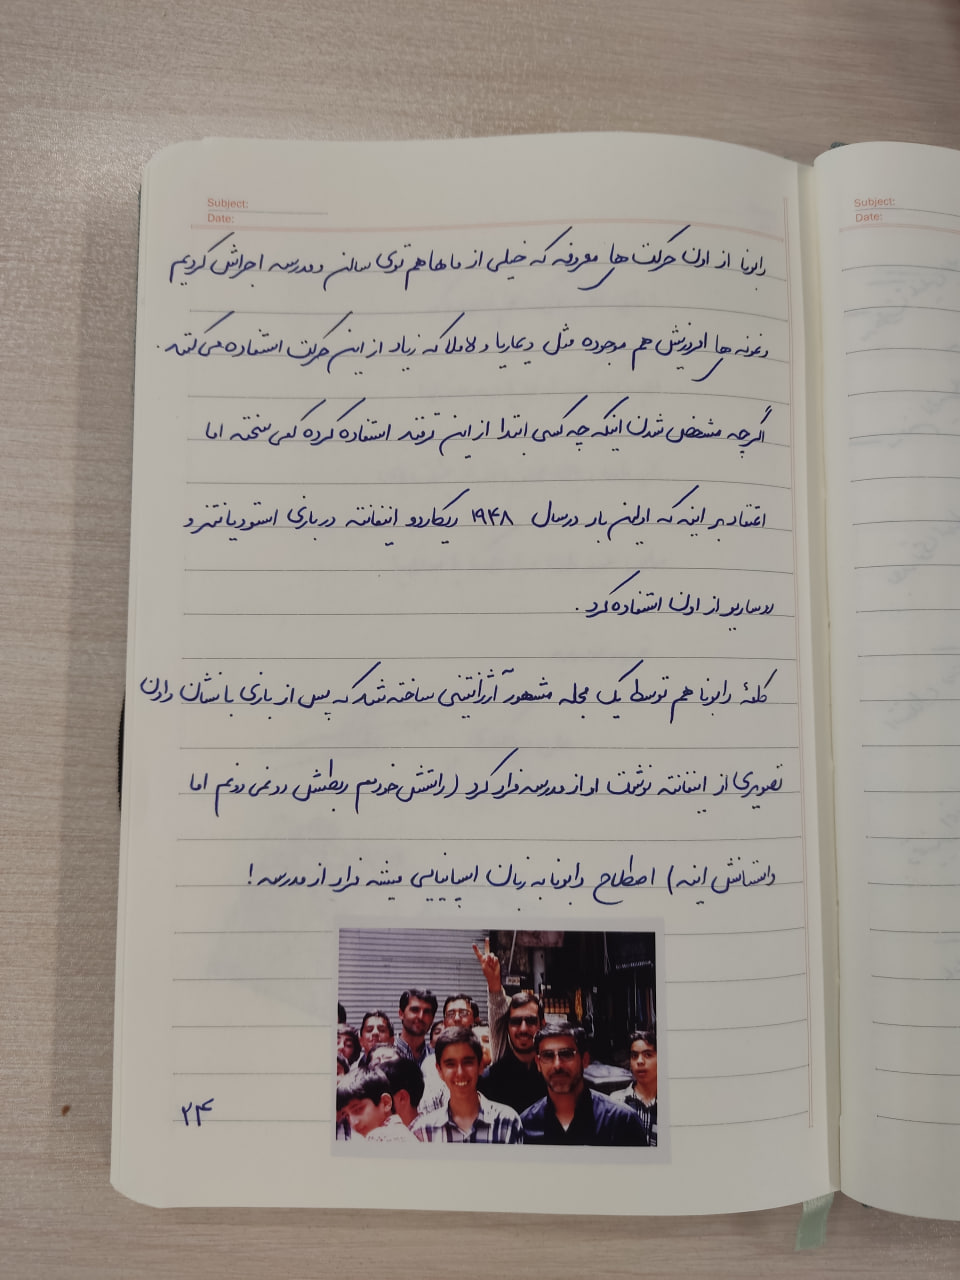 Subject:
Date:
رابونا از اون حرکت های معروفه که خیلی از ماها هم توی سالن و مدرسه اجراش کردیم
و نمونه های امروزیش هم موجوده مثل دیماریا و لاملا که زیاد از این حرکت استفاده می کنند.
اگرچه مشخص شدن اینکه چه کسی ابتدا از این ترفند استفاده کرده کمی سخته اما
اعتقاد بر اینه که اولین بار در سال ۱۹۴۸ ریکاردو اینفانته در بازی استودیانتس و
روساریو از اون استفاده کرد.
کلمهٔ رابونا هم توسط یک مجله مشهور آرژانتینی ساخته شد که پس از بازی با نشان دادن
تصویری از اینفانته نوشت او از مدرسه فرار کرد (راستش خودمم ربطش رو نمی دونم اما
داستانش اینه) اصطلاح رابونا به زبان اسپانیایی میشه فرار از مدرسه!
۲۴
Subject:
Date: